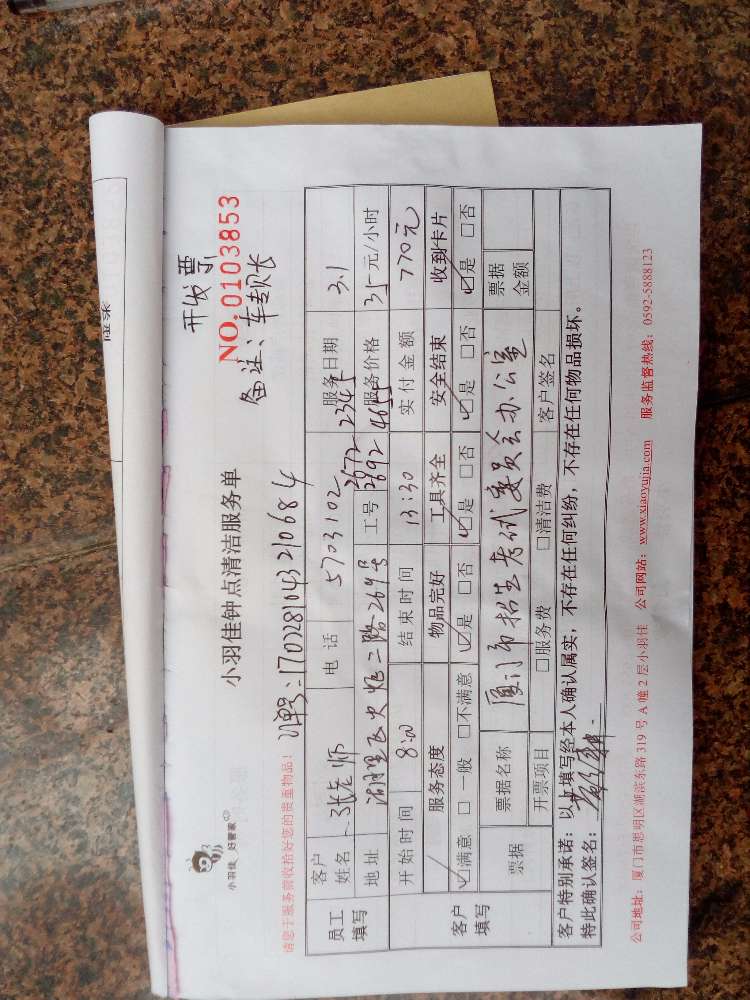 开发票
NO.0103853
备注:车费长
小羽佳 好管家
小羽佳钟点清洁服务单
请您于服务前收拾好您的贵重物品!
订单号:170228104321​0684
员工填写 客户姓名 张老师 电话 5703102 服务日期 3.1
地址 湖里区火炬二路269号 工号 2672 2345 2892 4655 服务价格 35元/小时
开始时间 8:00 结束时间 13:30 实付金额 770元
客户填写 服务态度 物品完好 工具齐全 安全结束 收到卡片
☑满意 □一般 □不满意 ☑是 □否 ☑是 □否 ☑是 □否 ☑是 □否
票据 票据名称 厦门市招生考试委员会办公室 票据金额
开票项目 □服务费 □清洁费 客户签名
客户特别承诺:以上填写经本人确认属实,不存在任何纠纷,不存在任何物品损坏。
特此确认签名:
公司地址:厦门市思明区湖滨东路319号A幢2层小羽佳 公司网站:www.xiaoyujia.com 服务监督热线:0592-5888123